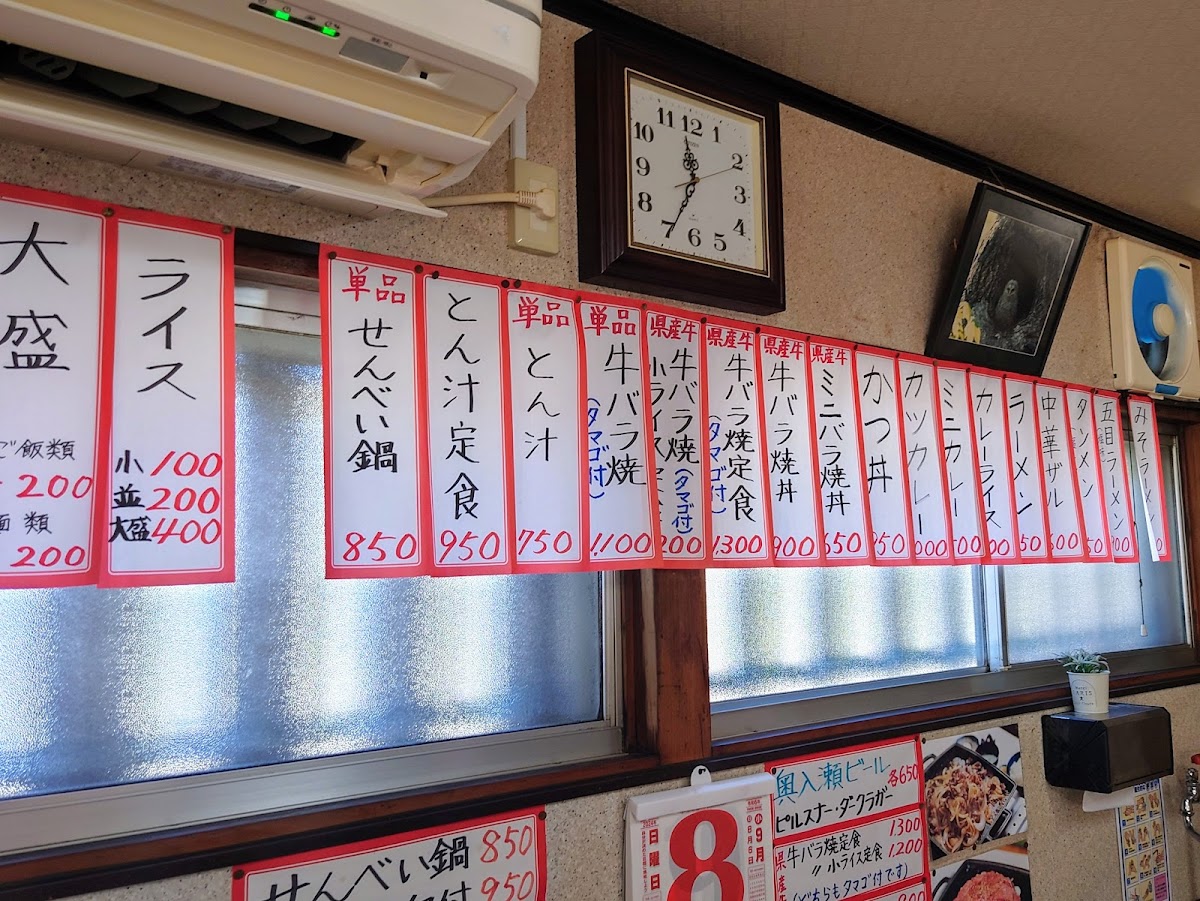 大盛
ご飯類
200
麺類
200
ライス
小 100
並 200
大盛 400
単品
せんべい鍋
850
とん汁定食
950
単品
とん汁
750
単品
牛バラ焼
(タマゴ付)
1,100
県産牛
牛バラ焼
小ライス定食
(タマゴ付)
200
県産牛
牛バラ焼定食
(タマゴ付)
1,300
県産牛
牛バラ焼丼
900
県産牛
ミニバラ焼丼
650
かつ丼
950
カツカレー
000
ミニカレー
500
カレーライス
00
ラーメン
50
中華ザル
600
タンメン
50
五目ラーメン
00
みそラーメン
0
11 12 1
10 2
9 3
8 4
7 6 5
せんべい鍋 850
950
日曜日
8
小
9月
奥入瀬ビール 各650
ピルスナー・ダークラガー
県産
牛バラ焼定食 1300
〃 小ライス定食 1,200
(どちらもタマゴ付です)